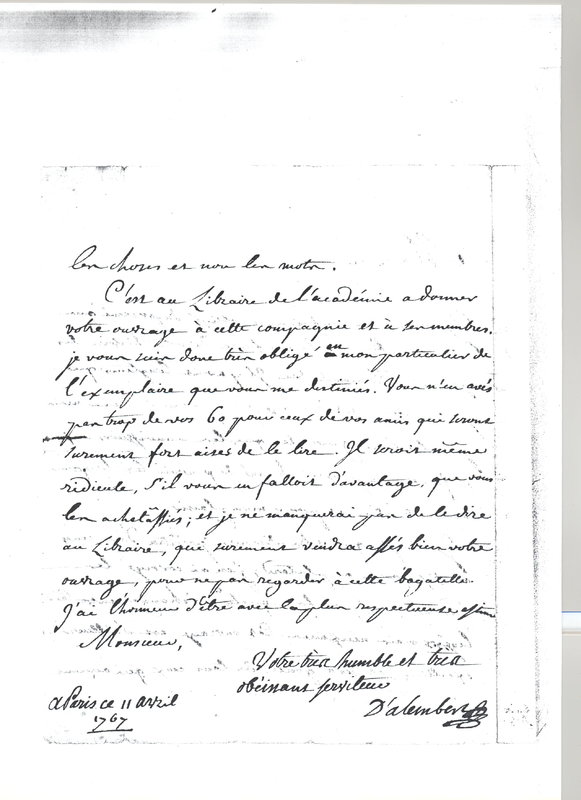 les choses et non les mots.
C'est au Libraire de l'académie a donner
votre ouvrage à cette compagnie et à ses membres.
je vous suis donc très obligé en mon particulier de
l'exemplaire que vous me destiniés. Vous n'en avés
pas trop de vos 60 pour ceux de vos amis qui seront
surement fort aises de le lire. Il seroit même
ridicule, s'il vous en falloit d'avantage, que vous
les achetassiés; et je ne manquerai pas de le dire
au Libraire, qui surement vendra assés bien votre
ouvrage, pour ne pas regarder à cette bagatelle.
J'ai l'honneur d'être avec la plus respectueuse estime
Monsieur,
Votre très humble et très
obéissant serviteur
D'alembert
a Paris ce 11 avril
1767